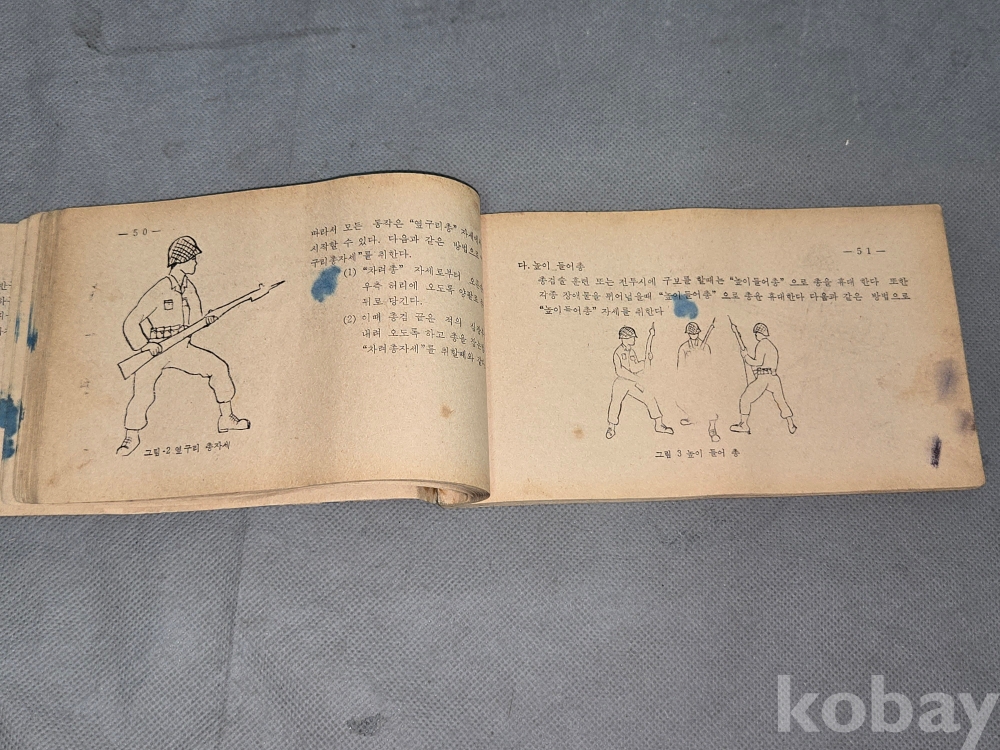 —50—
따라서 모든 동작은 "옆구리총" 자세에서
시작할 수 있다. 다음과 같은 방법으로
구리총자세"를 취한다.
(1) "차려총" 자세로부터
우측 허리에 오도록
뒤로 당긴다.
(2) 이때 총검 끝은 적의
내려 오도록 하고 총을
"차려총자세"를 취할때와
그림-2 옆구리 총자세
—51—
다. 높이 들어총
총검술 훈련 또는 전투시에 구보를 할때는 "높이들어총" 으로 총을 휴대 한다 또한
각종 장애물을 뛰어넘을때 "높이들어총" 으로 총을 휴대한다 다음과 같은 방법으로
"높이들어총" 자세를 취한다
그림 3 높이 들어 총
kobay